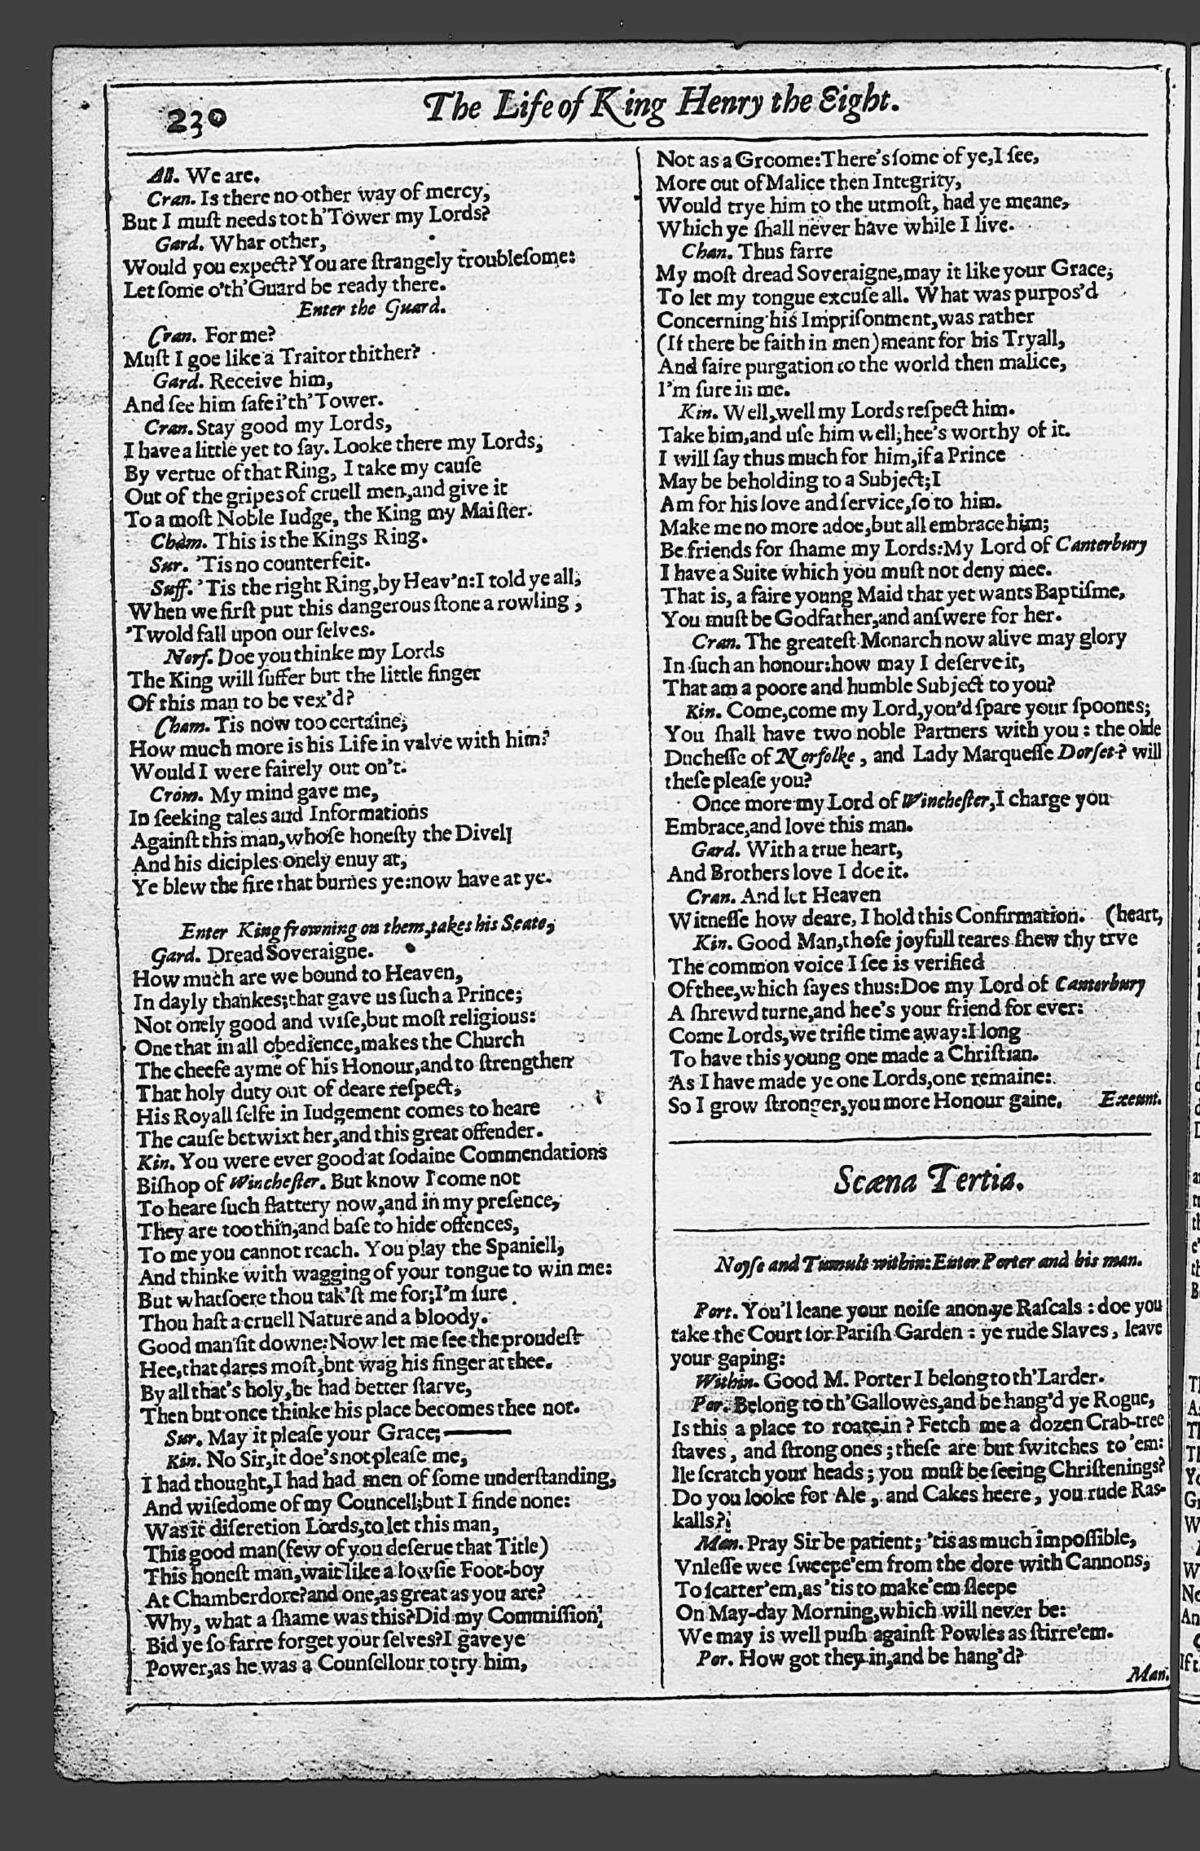 230
The Life of King Henry the Eight.
All. We are.
Cran. Is there no other way of mercy,
But I muſt needs to th'Tower my Lords?
Gard. Whar other,
Would you expect? You are ſtrangely troubleſome:
Let ſome o'th'Guard be ready there.
Enter the Guard.
Cran. For me?
Muſt I goe like a Traitor thither?
Gard. Receive him,
And ſee him ſafe i'th'Tower.
Cran. Stay good my Lords,
I have a little yet to ſay. Looke there my Lords,
By vertue of that Ring, I take my cauſe
Out of the gripes of cruell men, and give it
To a moſt Noble Iudge, the King my Maiſter.
Cham. This is the Kings Ring.
Sur. 'Tis no counterfeit.
Suff. 'Tis the right Ring, by Heav'n: I told ye all,
When we firſt put this dangerous ſtone a rowling,
'Twold fall upon our ſelves.
Norf. Doe you thinke my Lords
The King will ſuffer but the little finger
Of this man to be vex'd?
Cham. Tis now too certaine;
How much more is his Life in valve with him?
Would I were fairely out on't.
Crom. My mind gave me,
In ſeeking tales and Informations
Againſt this man, whoſe honeſty the Divell
And his diciples onely enuy at,
Ye blew the fire that burnes ye: now have at ye.
Enter King frowning on them, takes his Seate,
Gard. Dread Soveraigne.
How much are we bound to Heaven,
In dayly thankes; that gave us ſuch a Prince;
Not onely good and wiſe, but moſt religious:
One that in all obedience, makes the Church
The cheefe ayme of his Honour, and to ſtrengthen
That holy duty out of deare reſpect,
His Royall ſelfe in Iudgement comes to heare
The cauſe betwixt her, and this great offender.
Kin. You were ever good at ſodaine Commendations
Biſhop of Wincheſter. But know I come not
To heare ſuch flattery now, and in my preſence,
They are too thin, and baſe to hide offences,
To me you cannot reach. You play the Spaniell,
And thinke with wagging of your tongue to win me:
But whatſoere thou tak'ſt me for; I'm ſure
Thou haſt a cruell Nature and a bloody.
Good man ſit downe: Now let me ſee the proudeſt
Hee, that dares moſt, bnt wag his finger at thee.
By all that's holy, he had better ſtarve,
Then but once thinke his place becomes thee not.
Sur. May it pleaſe your Grace;——
Kin. No Sir, it doe's not pleaſe me,
I had thought, I had had men of ſome underſtanding,
And wiſedome of my Councell; but I finde none:
Was it diſcretion Lords, to let this man,
This good man (few of you deſerue that Title)
This honeſt man, wait like a lowſie Foot-boy
At Chamberdore? and one, as great as you are?
Why, what a ſhame was this? Did my Commiſſion
Bid ye ſo farre forget your ſelves? I gave ye
Power, as he was a Counſellour to try him,
Not as a Groome: There's ſome of ye, I ſee,
More out of Malice then Integrity,
Would trye him to the utmoſt, had ye meane,
Which ye ſhall never have while I live.
Chan. Thus farre
My moſt dread Soveraigne, may it like your Grace,
To let my tongue excuſe all. What was purpos'd
Concerning his Impriſonment, was rather
(If there be faith in men) meant for his Tryall,
And faire purgation to the world then malice,
I'm ſure in me.
Kin. Well, well my Lords reſpect him.
Take him, and uſe him well; hee's worthy of it.
I will ſay thus much for him, if a Prince
May be beholding to a Subject; I
Am for his love and ſervice, ſo to him.
Make me no more adoe, but all embrace him;
Be friends for ſhame my Lords: My Lord of Canterbury
I have a Suite which you muſt not deny mee.
That is, a faire young Maid that yet wants Baptiſme,
You muſt be Godfather, and anſwere for her.
Cran. The greateſt Monarch now alive may glory
In ſuch an honour: how may I deſerve it,
That am a poore and humble Subject to you?
Kin. Come, come my Lord, you'd ſpare your ſpoones;
You ſhall have two noble Partners with you: the olde
Ducheſſe of Norfolke, and Lady Marqueſſe Dorſet? will
theſe pleaſe you?
Once more my Lord of Wincheſter, I charge you
Embrace, and love this man.
Gard. With a true heart,
And Brothers love I doe it.
Cran. And let Heaven
Witneſſe how deare, I hold this Confirmation. (heart,
Kin. Good Man, thoſe joyfull teares ſhew thy trve
The common voice I ſee is verified
Of thee, which ſayes thus: Doe my Lord of Canterbury
A ſhrewd turne, and hee's your friend for ever:
Come Lords, we trifle time away: I long
To have this young one made a Chriſtian.
As I have made ye one Lords, one remaine:
So I grow ſtronger, you more Honour gaine. Exeunt.
Scæna Tertia.
Noyſe and Tumult within: Enter Porter and his man.
Port. You'l leane your noiſe anon ye Raſcals: doe you
take the Court for Pariſh Garden: ye rude Slaves, leave
your gaping:
Within. Good M. Porter I belong to th'Larder.
Por. Belong to th'Gallowes, and be hang'd ye Rogue,
Is this a place to roare in? Fetch me a dozen Crab-tree
ſtaves, and ſtrong ones; theſe are but ſwitches to 'em:
Ile ſcratch your heads; you muſt be ſeeing Chriſtenings?
Do you looke for Ale, and Cakes heere, you rude Ras-
kalls?
Man. Pray Sir be patient; 'tis as much impoſſible,
Vnleſſe wee ſweepe 'em from the dore with Cannons,
To ſcatter 'em, as 'tis to make 'em ſleepe
On May-day Morning, which will never be:
We may is well puſh againſt Powles as ſtirre 'em.
Por. How got they in, and be hang'd?
Man.